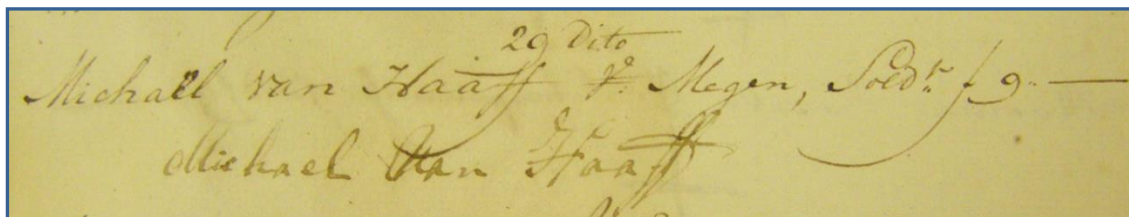 29 Dito
Michaël van Haaff V: Megen, Soldt. f 9 -
Michael Van Haaff